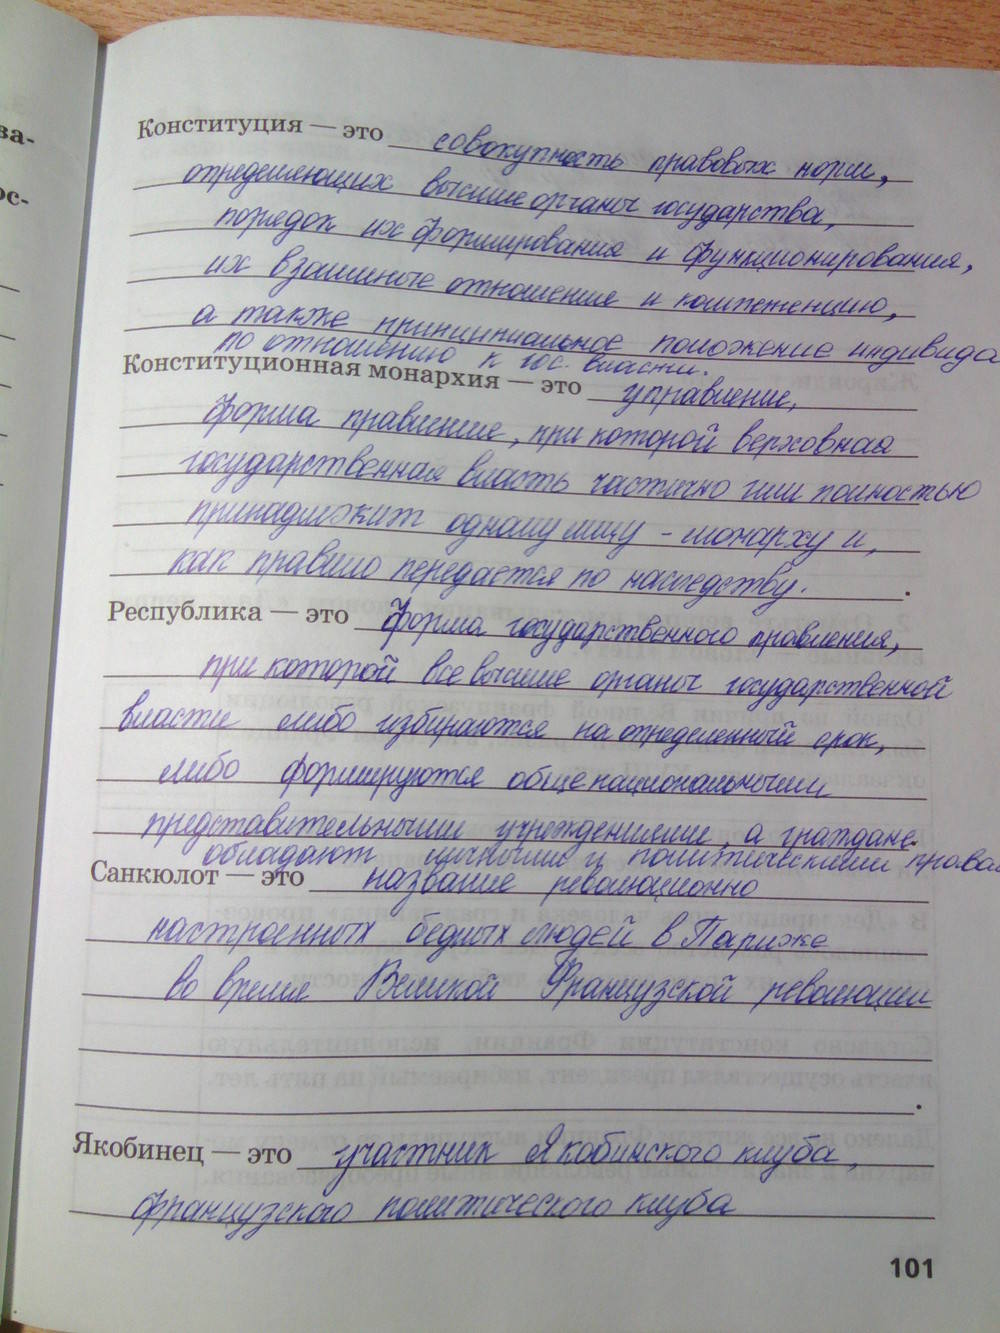 ва-
ос-
Конституция — это совокупность правовых норм,
определяющих высшие органы государства,
порядок их формирования и функционирования,
их взаимные отношения и компетенцию,
а также принципиальное положение индивида
по отношению к гос. власти.
Конституционная монархия — это управление,
форма правление, при которой верховная
государственная власть частично или полностью
принадлежит одному лицу - монарху и,
как правило передается по наследству.
Республика — это форма государственного правления,
при которой все высшие органы государственной
власти либо избираются на определенный срок,
либо формируются общенациональными
представительными учреждениями, а граждане
обладают личными и политическими права
Санкюлот — это название революционно
настроенных бедных людей в Париже
во время Великой Французской революции
.
Якобинец — это участник Якобинского клуба,
французского политического клуба
101